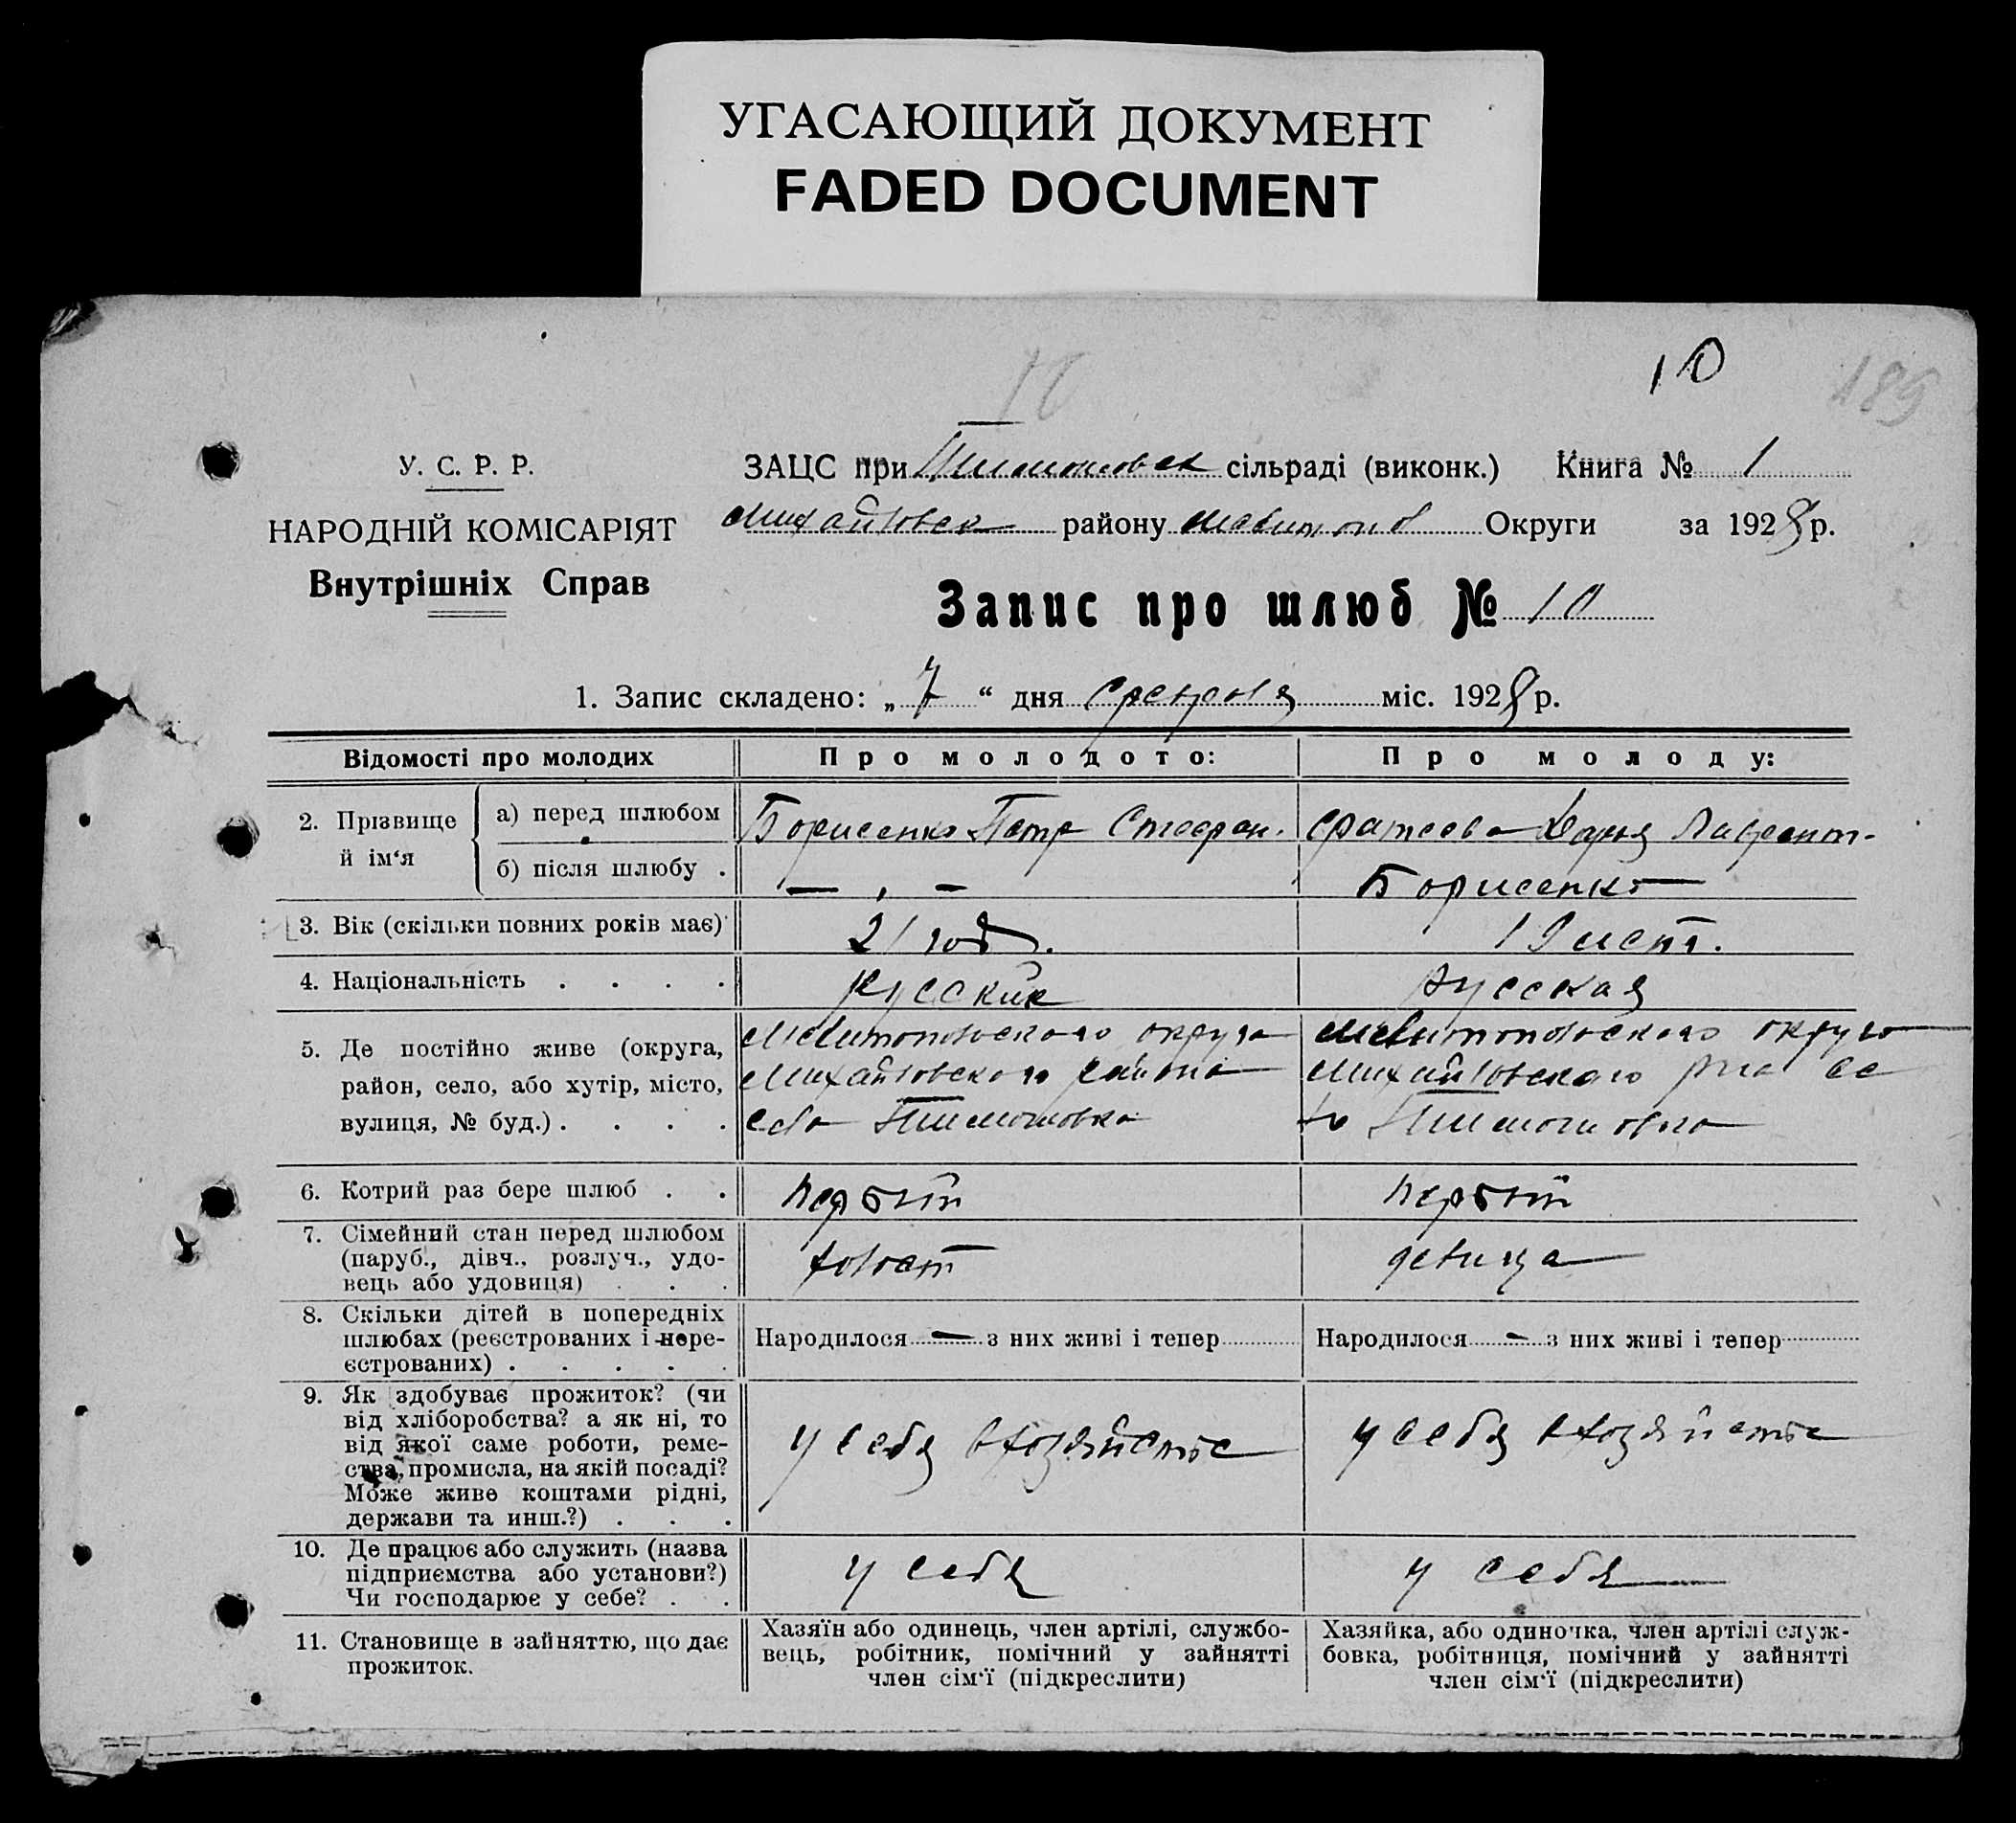 УГАСАЮЩИЙ ДОКУМЕНТ
FADED DOCUMENT
10
189
У. С. Р. Р.
НАРОДНІЙ КОМІСАРІЯТ
Внутрішніх Справ
ЗАЦС при Тимошовск сільраді (виконк.) Книга № 1
Михайловск району Мелитопол Округи за 1928 р.
Запис про шлюб № 10
1. Запис складено: „7“ дня февраля міс. 1928 р.
Відомості про молодих
Про молодого:
Про молоду:
2. Прізвище й ім‘я
а) перед шлюбом
Борисенко Петр Стефан.
Фатеева Дарья Лаврент-
б) після шлюбу .
— „ —
Борисенко
3. Вік (скільки повних років має)
21 год.
19 лет.
4. Національність . . . .
русский
русская
5. Де постійно живе (округа,
район, село, або хутір, місто,
вулиця, № буд.) . . . .
Мелитопольского округа
Михайловского района
села Тимошовка
Мелитопольского округа
Михайловского р-на се
ло Тимошовка
6. Котрий раз бере шлюб . .
первый
первый
7. Сімейний стан перед шлюбом
(паруб., дівч., розлуч., удо-
вець або удовиця) . . .
холост
девица
8. Скільки дітей в попередніх
шлюбах (реєстрованих і нере-
єстрованих) . . . . .
Народилося — з них живі і тепер
Народилося — з них живі і тепер
9. Як здобуває прожиток? (чи
від хліборобства? а як ні, то
від якої саме роботи, реме-
ства, промисла, на якій посаді?
Може живе коштами рідні,
держави та инш.?) . . .
у себя в хозяйстве
у себя в хозяйстве
10. Де працює або служить (назва
підприємства або установи?)
Чи господарює у себе? . .
у себя
у себя
11. Становище в зайняттю, що дає
прожиток.
Хазяїн або одинець, член артілі, службо-
вець, робітник, помічний у зайнятті
член сім‘ї (підкреслити)
Хазяйка, або одиночка, член артілі служ-
бовка, робітниця, помічний у зайнятті
член сім‘ї (підкреслити)